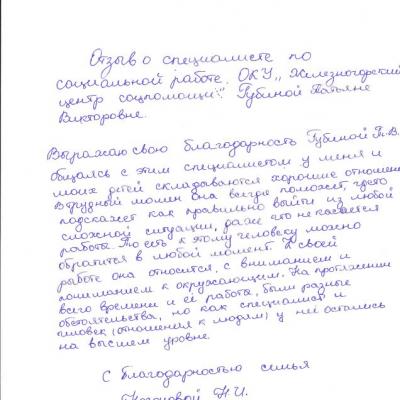 Отзыв о специалисте по
социальной работе. ОКУ „Железногорский
центр соцпомощи" Губиной Татьяне
Викторовне.
Выражаю свою благодарность Губиной Т.В.
общаясь с этим специалистом у меня и
моих детей складываются хорошие отношен
В трудный момен она всегда поможет, где то
подскажет как правильно выйти из любой
сложной ситуации, даже что не касается
работы. То есть к этому человеку можно
обратится в любой момент. К своей
работе она относится, с вниманием и
пониманием к окружающим. На протяжении
всего времени и её работы, были разные
обстоятельства, но как специалист и
человек (отношения к людям) у неё остались
на высшем уровне.
С благодарностью семья
Н.И.